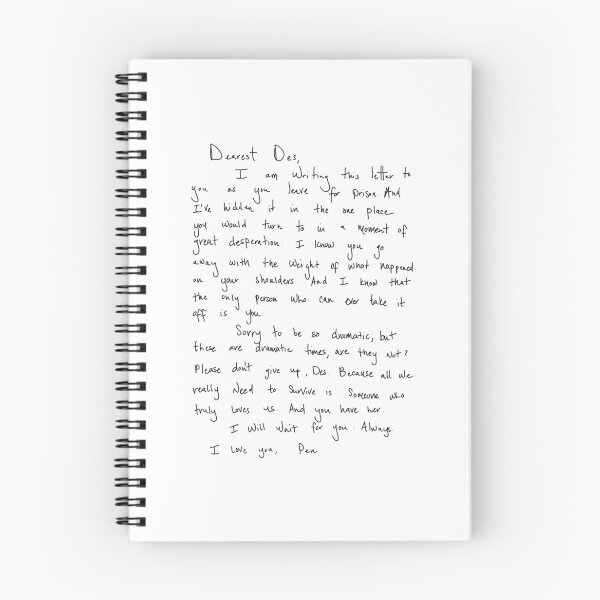 Dearest Des,
I am writing this letter to
you as you leave for prison And
I've hidden it in the one place
you would turn to in a moment of
great desperation. I know you go
away with the weight of what happened
on your shoulders And I know that
the only person who can ever take it
off is you
Sorry to be so dramatic, but
these are dramatic times, are they not?
Please don't give up, Des. Because all we
really Need to Survive is Someone who
truly loves us. And you have her.
I Will Wait for you. Always.
I love you, Pen